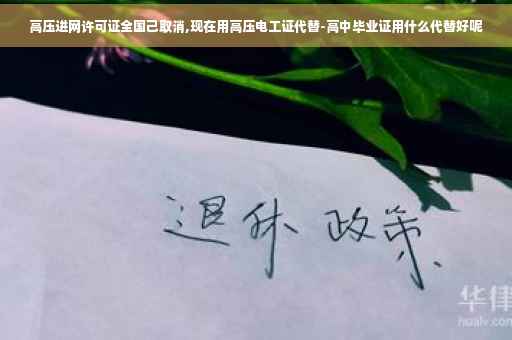 高压进网许可证全国已取消,现在用高压电工证代替-高中毕业证用什么代替好呢
退休 政策
华律
hualv.com